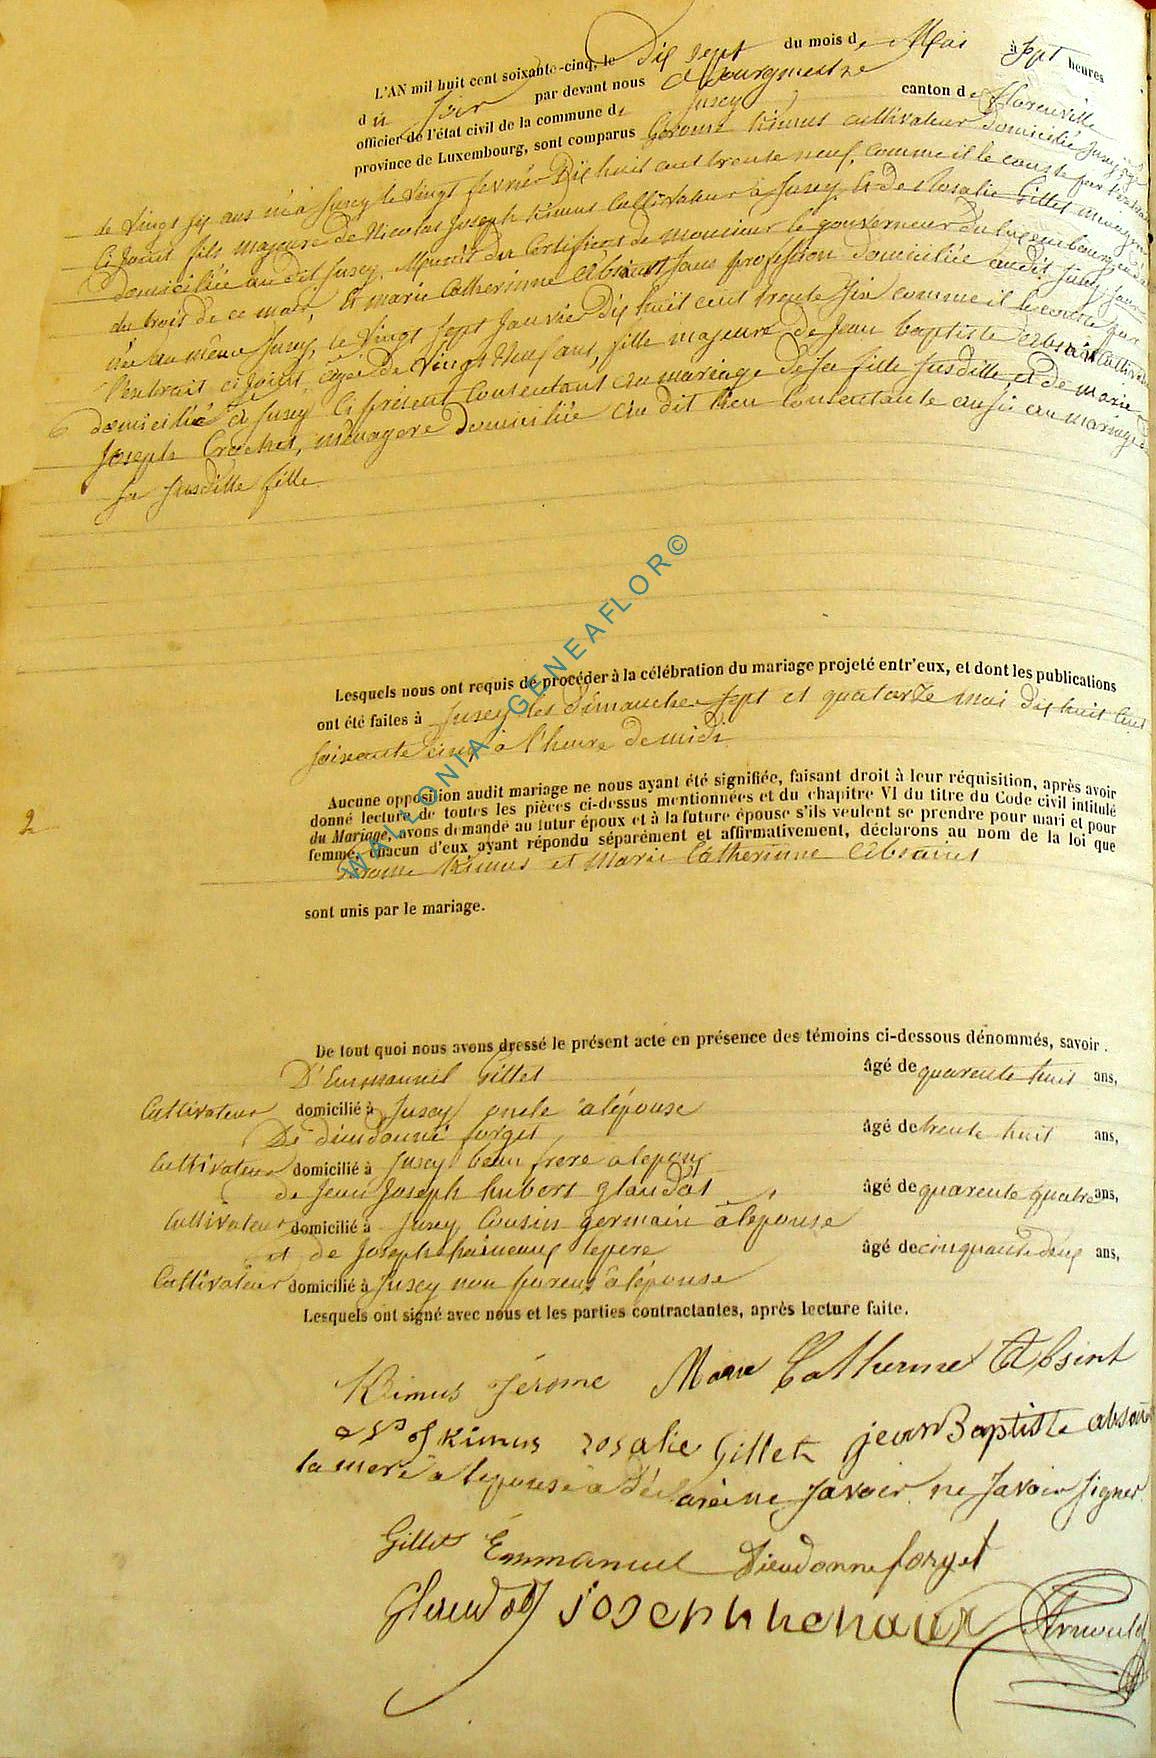 L'AN mil huit cent soixante-cinq, le Dix sept du mois de Mai à sept heures
du soir par devant nous Bourgmestre
officier de l'état civil de la commune de Jusey canton de Florenville
province de Luxembourg, sont comparus Gérome Kimus cultivateur domicilié Jusey
de Vingt six ans né à Jusey le Vingt février Dix huit cent trente neuf, comme il le conste par l'extrait
Ci Joint fils majeure de Nicolas Joseph Kimus Cultivateur à Jusey, et de Rosalie Gillet
domiciliée au dit Jusey, Munit du Certificat de monsieur le gouverneur du luxembourg
du trois de ce mois, Et marie Catherinne Absaint sans profession domiciliée audit Jusey
née au même Jusey, le Vingt sept Janvier Dix huit cent trente six comme il le conste par
l'extrait ci joint, agée de Vingt Neuf ans, fille majeure de Jean baptiste Absaint
domicilié à Jusey Ci présent Consentant au mariage de sa fille susditte et de marie
Joseph Crochet, ménagere domiciliée au dit lieu Consentante aussi au mariage
sa susditte fille
Lesquels nous ont requis de procéder à la célébration du mariage projeté entr'eux, et dont les publications
ont été faites à Jusey les Dimanches sept et quatorze mai dix huit cent
soixante cinq à l'heure de midi
Aucune opposition audit mariage ne nous ayant été signifiée, faisant droit à leur réquisition, après avoir
donné lecture de toutes les pièces ci-dessus mentionnées et du chapitre VI du titre du Code civil intitulé
du Mariage, avons demandé au futur époux et à la future épouse s'ils veulent se prendre pour mari et pour
femme; chacun d'eux ayant répondu séparément et affirmativement, déclarons au nom de la loi que
2
Gérome Kimus et Marie Catherinne Absaint
sont unis par le mariage.
De tout quoi nous avons dressé le présent acte en présence des témoins ci-dessous dénommés, savoir.
D'Emmanuel Gillet âgé de quarente huit ans,
Cultivateur domicilié à Jusey oncle à lépouse
De dieudonné forget âgé de trente huit ans,
Cultivateur domicilié à Jusey beau frere a lepous
de Jean Joseph hubert glaudot âgé de quarente quatre ans,
Cultivateur domicilié à Jusey Cousin germain à lépouse
et de Joseph haineaux lepere âgé de cinquante deux ans,
Cultivateur domicilié à Jusey non parens à lépouse
Lesquels ont signé avec nous et les parties contractantes, après lecture faite.
Kimus Jérome Marie Catherine Absint
Kimus rosalie Gillet jean Baptiste absaint
la mere a lepouse a déclarée ne savoir ne savoir signer
Gillet Emmanuel Dieudonné forget
Glaudot Joseph henaux Arnould
WALLONIA - GENEAFLOR©